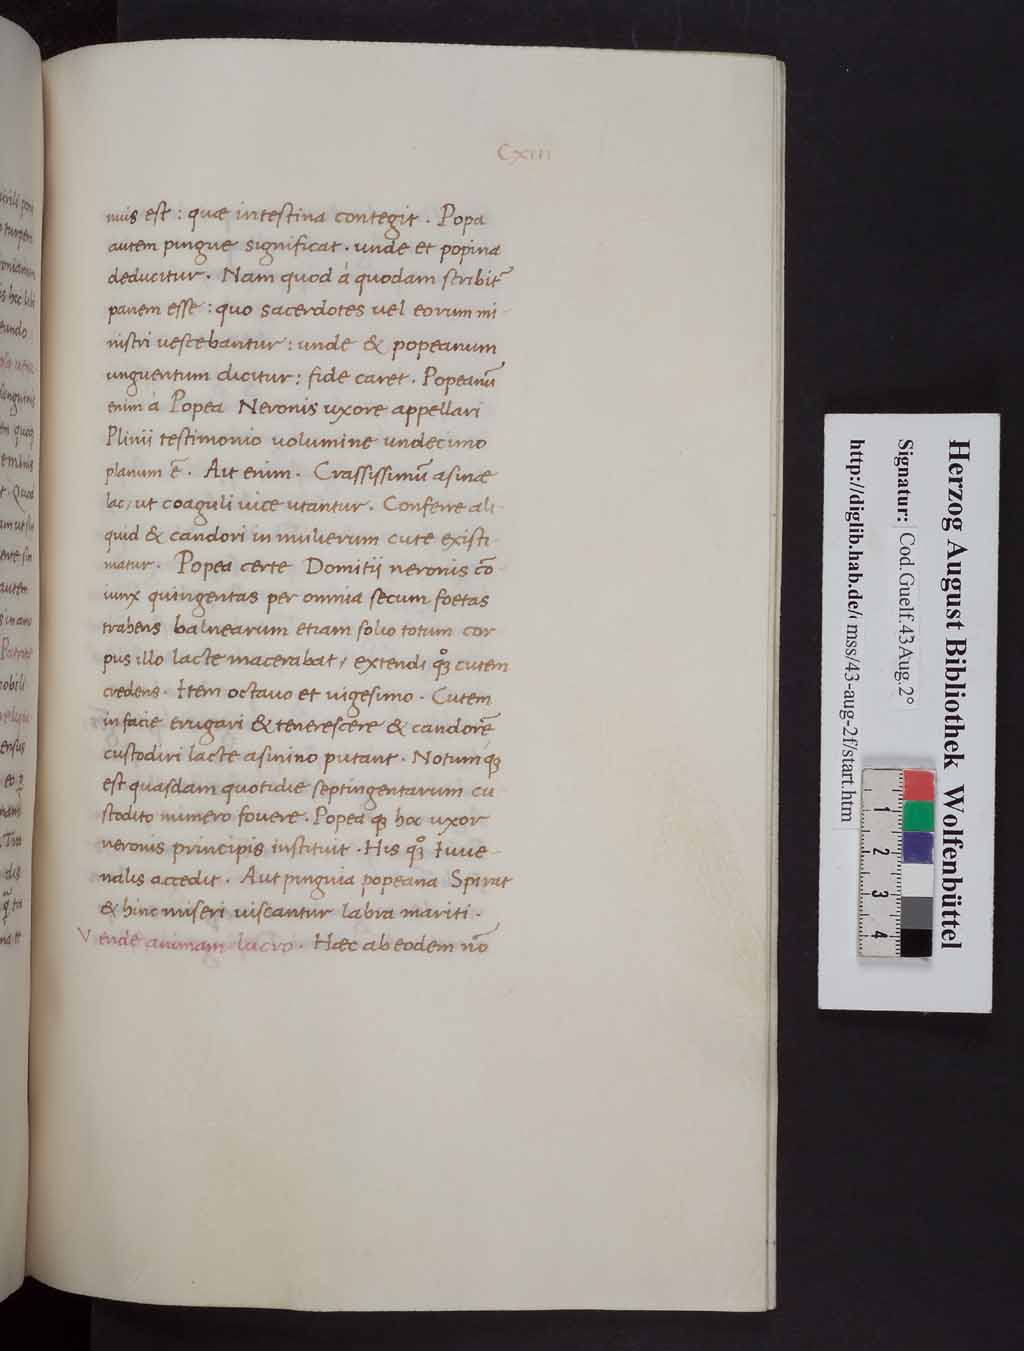 Cxiii
nuis est : quæ intestina contegit . Popa
autem pingue significat . unde et popina
deducitur . Nam quod á quodam scribit᷑
panem esse : quo sacerdotes uel eorum mi-
nistri uescebantur : unde & popeanum
unguentum dicitur : fide caret . Popeanū
enim á Popea Neronis uxore appellari
Plinii testimonio uolumine undecimo
planum ē . Ait enim . Crassissimū asinæ
lac / ut coaguli uice utantur . Conferre ali-
quid & candori in mulierum cute existi-
matur . Popea certe Domitij neronis cō
iunx quingentas per omnia secum foetas
trahens balnearum etiam solio totum cor
pus illo lacte macerabat / extendi qꝫ cutem
credens . Item octauo et uigesimo . Cutem
in facie erugari & tenerescere & candorē
custodiri lacte asinino putant . Notumqꝫ
est quasdam quotidie septingentarum cu
stodito numero fouere . Popea qꝫ hoc uxor
neronis principis instituit . His qꝫ Iuue-
nalis accedit . Aut pinguia popeana Spirat
& hinc miseri uiscantur labra mariti .
Vende animam lucro . Hæc ab eodem nō
Herzog August Bibliothek Wolfenbüttel
Signatur: Cod.Guelf.43 Aug.2°
http://diglib.hab.de/ mss/43-aug-2f/start.htm
1
2
3
4